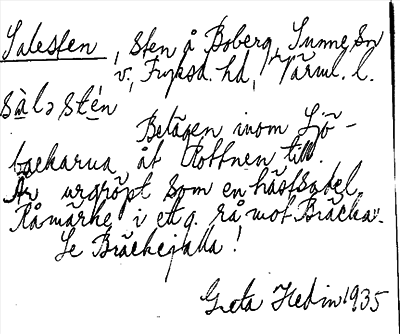 Salesten, Sten å Boberg, Sunne sn
v., Fryksd. hd, Värml. l.
sàlə stén
Belägen inom Sjö-
backarna åt Rottnen till.
Är urgröpt som en hästsadel.
Råmärke i ett g. rå mot Bräcka.
Se Bräckejalla!
Greta Hedin 1935